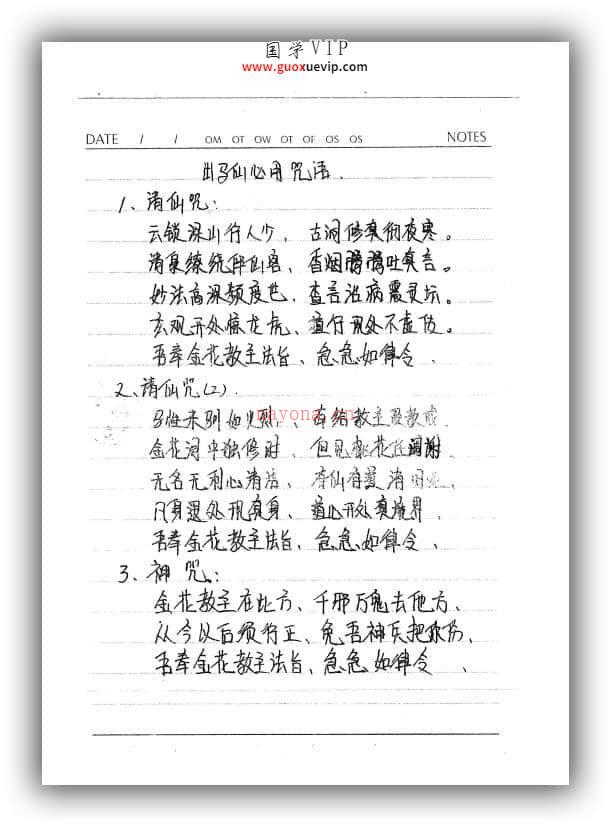 国学VIP
www.guoxuevip.com
DATE / / OM OT OW OT OF OS OS NOTES
出马仙必用咒语.
1、清仙咒:
云锁深山行人少,古洞修真彻夜寒。
清泉缭绕伴仙客,香烟 吐真言。
妙法高深频度世,查言治病震灵坛。
玄观开处惊龙虎,道行 处不虚传。
吾奉金花教主法旨,急急如律令、
nayona.cn
2、请仙咒(2).
马性未别
金花洞中独修时、但见 花
无名无利心清洁、有仙有
凡身退处现真身、道心开处真境界、
吾奉金花教主法旨、急急如律令、
3、神咒:
金花教主在此方、千邪万鬼去他方、
从今以后须行正、免吾神兵把你伤、
吾奉金花教主法旨、急急如律令、